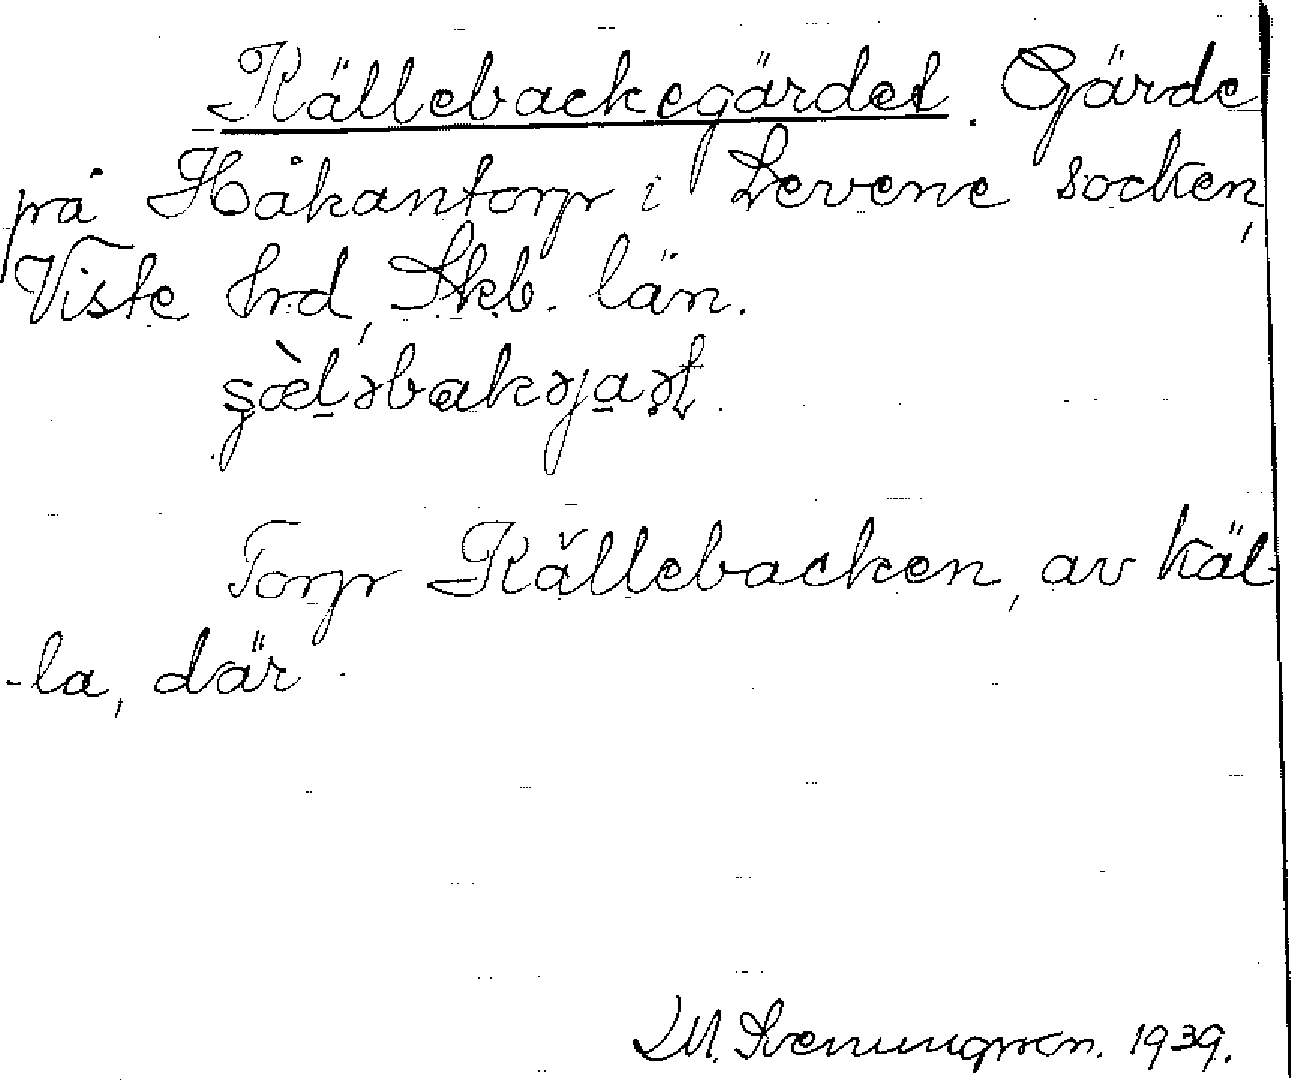 Källebackegärdet. Gärde
på Håkantorp i Levene socken,
Viste hrd, Skb. län.
Torp Källebacken, av käl-
-la, där.
M. Svenungsson. 1939.